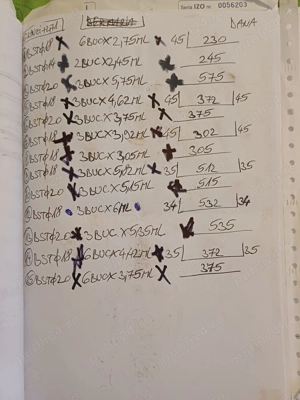 Seria IZO nr 0056203
DANA
BSTϕ18 6BUCX2,75ML 45 230
BSTϕ14 2BUCX2,45ML 245
BSTϕ20 3BUCX5,75ML 575
BSTϕ18 3BUCX4,62ML 45 372 45
BSTϕ20 3BUCX3,75ML 375
BSTϕ18 3BUCX3,92ML 45 302 45
BSTϕ18 3BUCX3,05ML 305
BSTϕ18 3BUCX5,82ML 35 512 35
BSTϕ20 3BUCX5,15ML 515
BSTϕ18 3BUCX6ML 34 532 34
BSTϕ20 3BUCX5,35ML 535
BSTϕ18 6BUCX4,42ML 35 372 35
BSTϕ20 6BUCX3,75ML 375